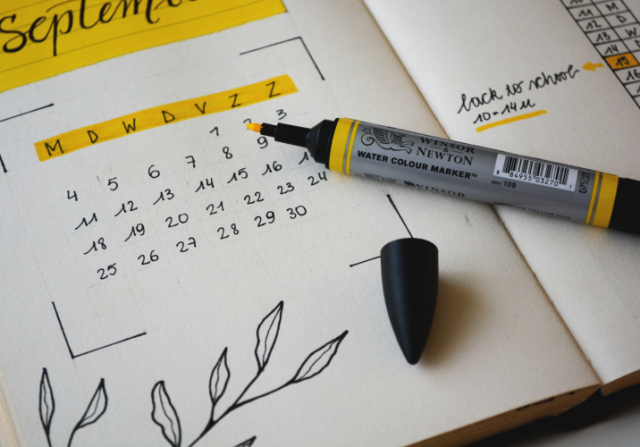 Septem
M D W D V Z Z
1 2 3
4 5 6 7 8 9
11 12 13 14 15 16
18 19 20 21 22 23 24
25 26 27 28 29 30
WINSOR
&
NEWTON
WATER COLOUR MARKER™
109
8 84955 03270 1
WINSOR
back to school
10-14u
11 M
12 D
13 W
14 D
15
16